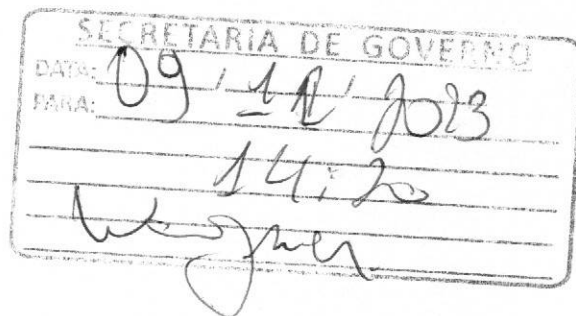 SECRETARIA DE GOVERNO
DATA: 09 / 11 / 2023
PARA:
14:20
Wagner